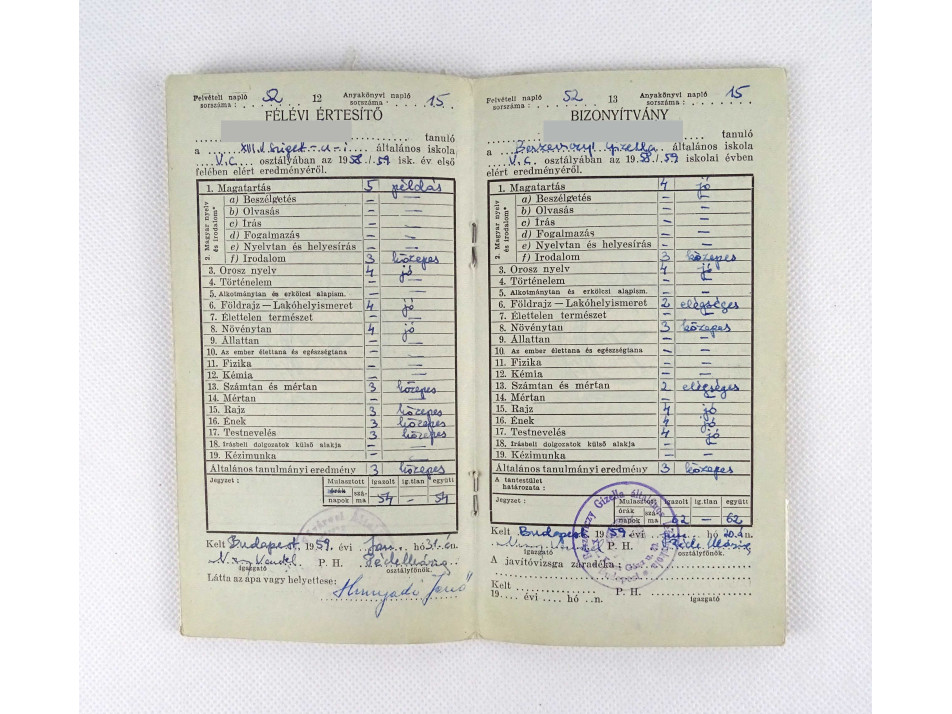 Felvételi napló sorszáma: 52 12 Anyakönyvi napló sorszáma: 15
FÉLÉVI ÉRTESÍTŐ
tanuló
a XIII. Sziget-u-i általános iskola
V.C. osztályában az 1958/59 isk. év első
felében elért eredményéről.
1. Magatartás 5 példás
2. Magyar nyelv és irodalom*
a) Beszélgetés – —
b) Olvasás – —
c) Írás – —
d) Fogalmazás – —
e) Nyelvtan és helyesírás – —
f) Irodalom 3 közepes
3. Orosz nyelv 4 jó
4. Történelem – —
5. Alkotmánytan és erkölcsi alapism. – —
6. Földrajz — Lakóhelyismeret 4 jó
7. Élettelen természet – —
8. Növénytan 4 jó
9. Állattan – —
10. Az ember élettana és egészségtana – —
11. Fizika – —
12. Kémia – —
13. Számtan és mértan 3 közepes
14. Mértan – —
15. Rajz 3 közepes
16. Ének 3 közepes
17. Testnevelés 3 közepes
18. Írásbeli dolgozatok külső alakja – —
19. Kézimunka – —
Általános tanulmányi eredmény 3 közepes
Jegyzet: Mulasztott órák napok száma igazolt ig.tlan együtt
54 – 54
Kelt Budapest, 1959. évi jan. hó 31-én.
P. H.
igazgató osztályfőnök.
Látta az apa vagy helyettese:
Hunyadi Jenő
Felvételi napló sorszáma: 52 13 Anyakönyvi napló sorszáma: 15
BIZONYÍTVÁNY
tanuló
a Gizella általános iskola
V.C. osztályában az 1958/59 iskolai évben
elért eredményéről.
1. Magatartás 4 jó
2. Magyar nyelv és irodalom*
a) Beszélgetés – —
b) Olvasás – —
c) Írás – —
d) Fogalmazás – —
e) Nyelvtan és helyesírás – —
f) Irodalom 3 közepes
3. Orosz nyelv 4 jó
4. Történelem – —
5. Alkotmánytan és erkölcsi alapism. – —
6. Földrajz — Lakóhelyismeret 2 elégséges
7. Élettelen természet – —
8. Növénytan 3 közepes
9. Állattan – —
10. Az ember élettana és egészségtana – —
11. Fizika – —
12. Kémia – —
13. Számtan és mértan 2 elégséges
14. Mértan – —
15. Rajz 4 jó
16. Ének 4 jó
17. Testnevelés 4 jó
18. Írásbeli dolgozatok külső alakja – —
19. Kézimunka – —
Általános tanulmányi eredmény 3 közepes
A tantestület határozata:
Jegyzet: Mulasztott órák napok száma igazolt ig.tlan együtt
62 – 62
Kelt Budapest, 1959. évi jun. hó 20.án
P. H.
igazgató osztályfőnök.
A javítóvizsga záradéka:
Kelt
19 évi hó n. P. H.
igazgató